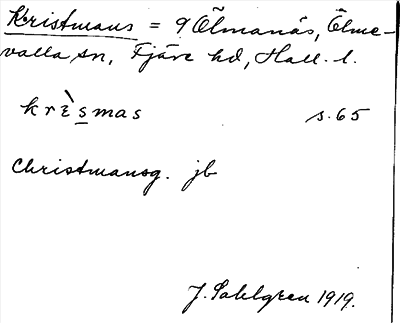 Kristmans = 9 Ölmanäs, Ölme-
valla sn, Fjäre hd, Hall. l.
krɛ̀smas s. 65
Christmansg. jb
J. Sahlgren 1919.